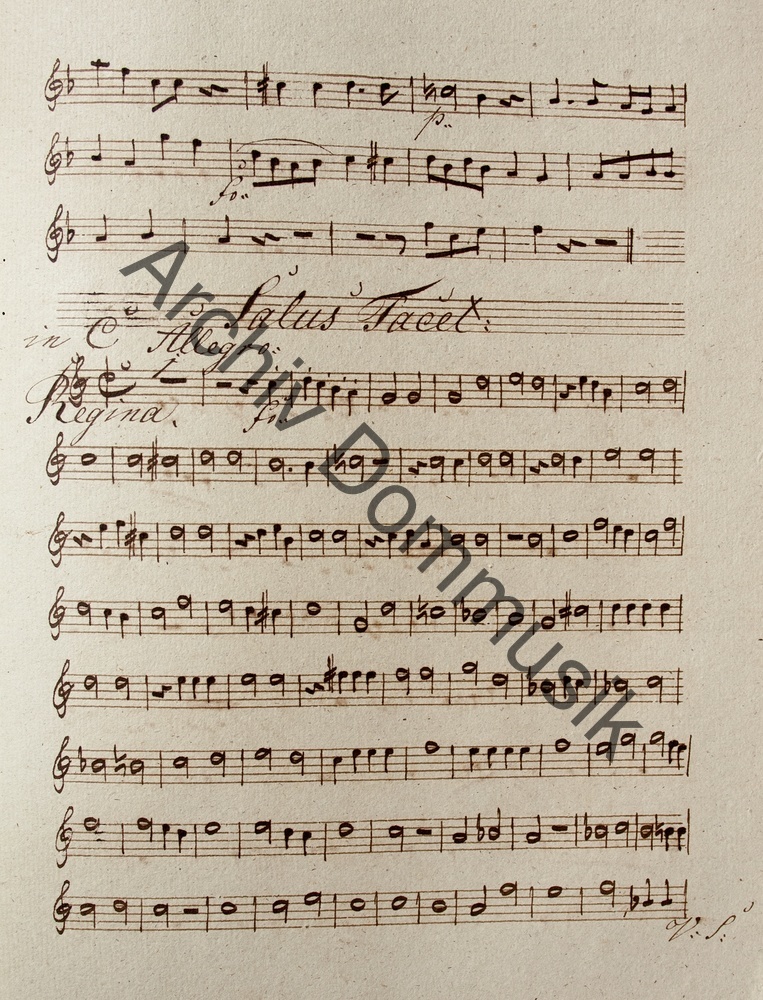 p:
fo:
Salus Tacet:
in C Allegro:
1
Regina. fo:
V: S:
Archiv Dommusik